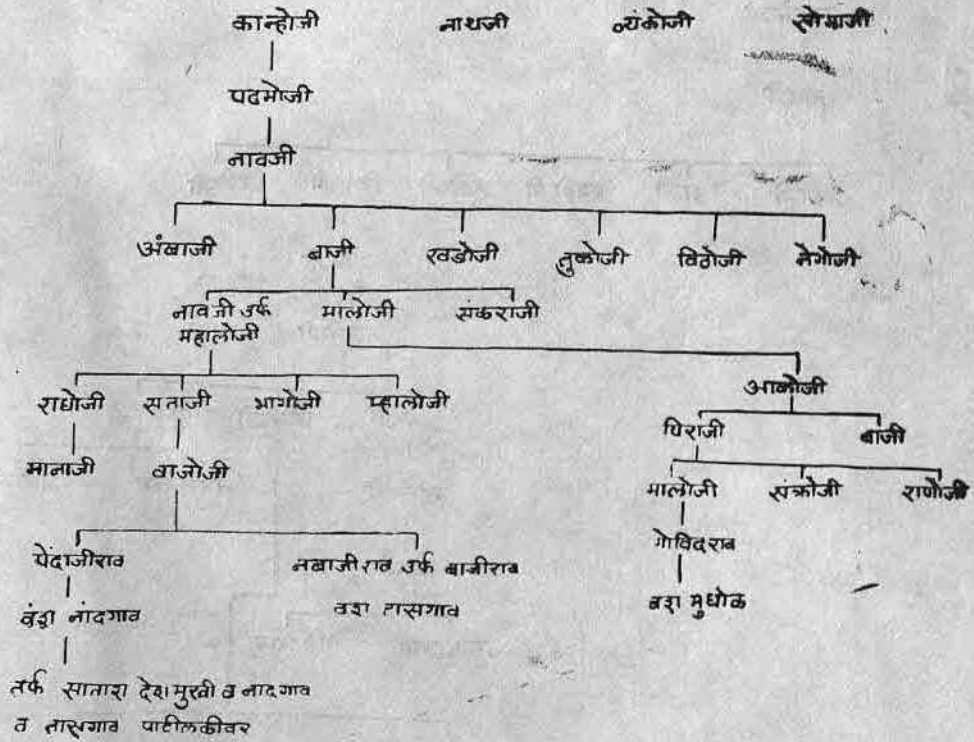 कान्होजी नाथजी व्यंकोजी सोमाजी
पदमोजी
नावजी
अंबाजी बाजी खडोजी तुकोजी विठोजी नेगोजी
नावजी उर्फ मालोजी संकराजी
महालोजी
राघोजी सताजी भागोजी म्हालोजी आकोजी
पिराजी बाजी
मानाजी वाजोजी
मालोजी संक्रोजी राणोजी
पेंदाजीराव नबाजीराव उर्फ बाजीराव गोविदराव
वंश नांदगाव वश तासगाव वश मुधोळ
तर्फ सातारा देशमुखी व नादगाव
व तासगाव पाटीलकीवर